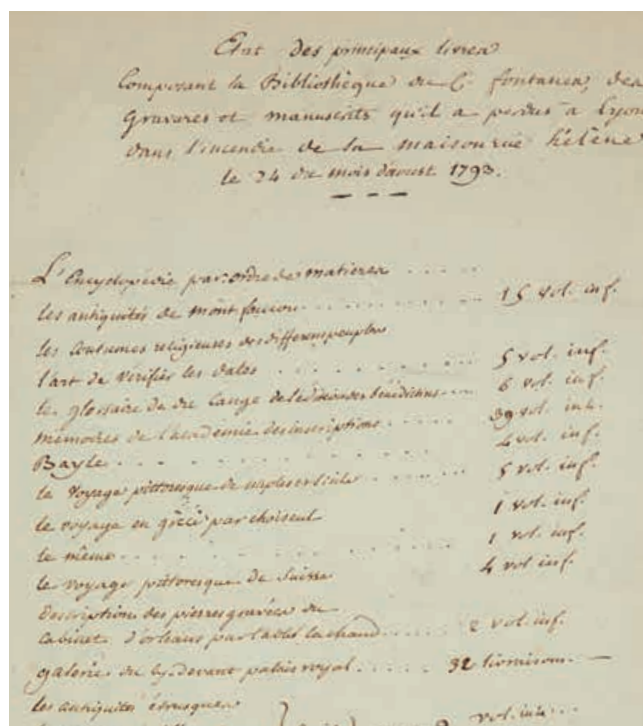 Etat des principaux livres
Composant la Bibliothèque du C. fontanes, des
Gravures et manuscrits qu'il a perdus à Lyon
dans l'incendie de sa maison rue hélène
le 24 du mois d'aoust 1793.
L'Encyclopédie par ordre de matieres . . . . .
les antiquités de montfaucon . . . . . . . . . . 15 vol. inf.
les Coutumes religieuses des differens peuples
l'art de verifier les dates . . . . . . . . . . 5 vol. inf.
le glossaire de du Cange de l'edition des benedictins . . . 6 vol. inf.
memoires de l'academie des inscriptions . . . . . 39 vol. in4.
Bayle . . . . . . . . . . 4 vol. inf.
le voyage pittoresque de naples et sicile . . . . . 5 vol. inf.
le voyage en grèce par choiseul 1 vol. inf.
le même . . . . . . . . . . 1 vol. inf.
le voyage pittoresque de Suisse 4 vol inf.
description des pierres gravées du
Cabinet d'orleans par l'abbé lachaud . . . . . 2 vol. inf.
galerie du cy-devant palais royal . . . . . 32 livraisons. —
les antiquités étrusques
vol. in4 . . .